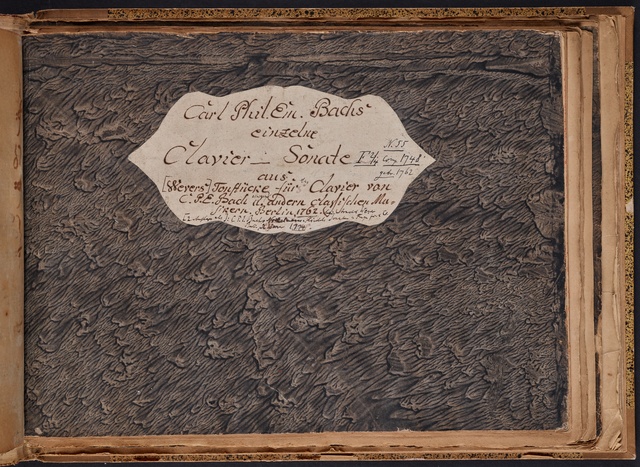 Carl Phil. Em. Bachs
einzelne
Clavier-Sonate F 2/4 N. 55 Comp. 1748
gedr. 1762
aus
[Wevers] Tonstücke für's Clavier von
C. P. E. Bach u. andern classischen Mu-
sikern. Berlin, 1762.
1774.